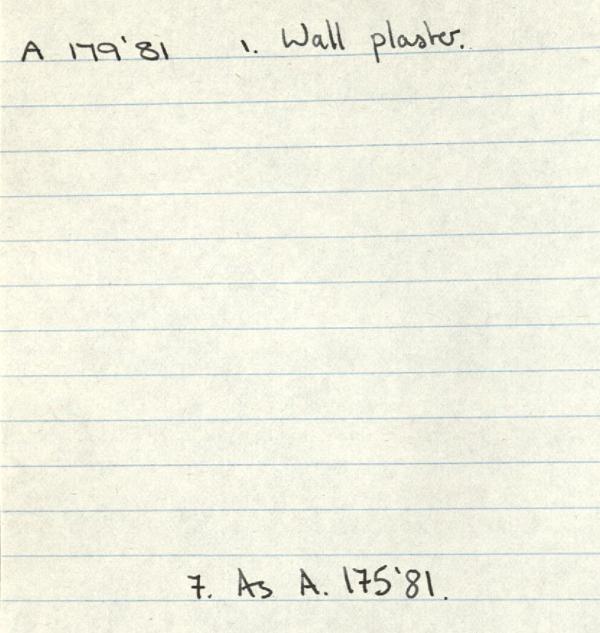 A 179'81 1. Wall plaster.
7. As A. 175'81.